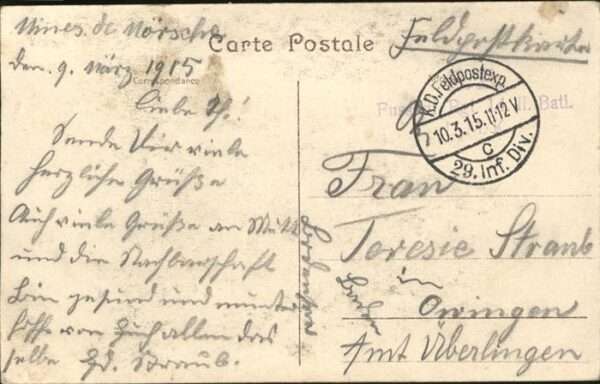 Carte Postale
Feldpostkarte
Mines de Mörsch
Den 9. März 1915
Correspondance
Liebe Th!
Sende Dir viele
herzliche Grüße
Auch viele Grüße an Mutt
und die Nachbarschaft
bin gesund und munter
hoffe von Euch allen das
selbe Ed. Straub.
K.D.Feldpostexp.
10.3.15.11-12V
c
29. Inf. Div.
II. Batl.
Frau
Teresie Straub
in
Owingen
Amt Überlingen
Baden